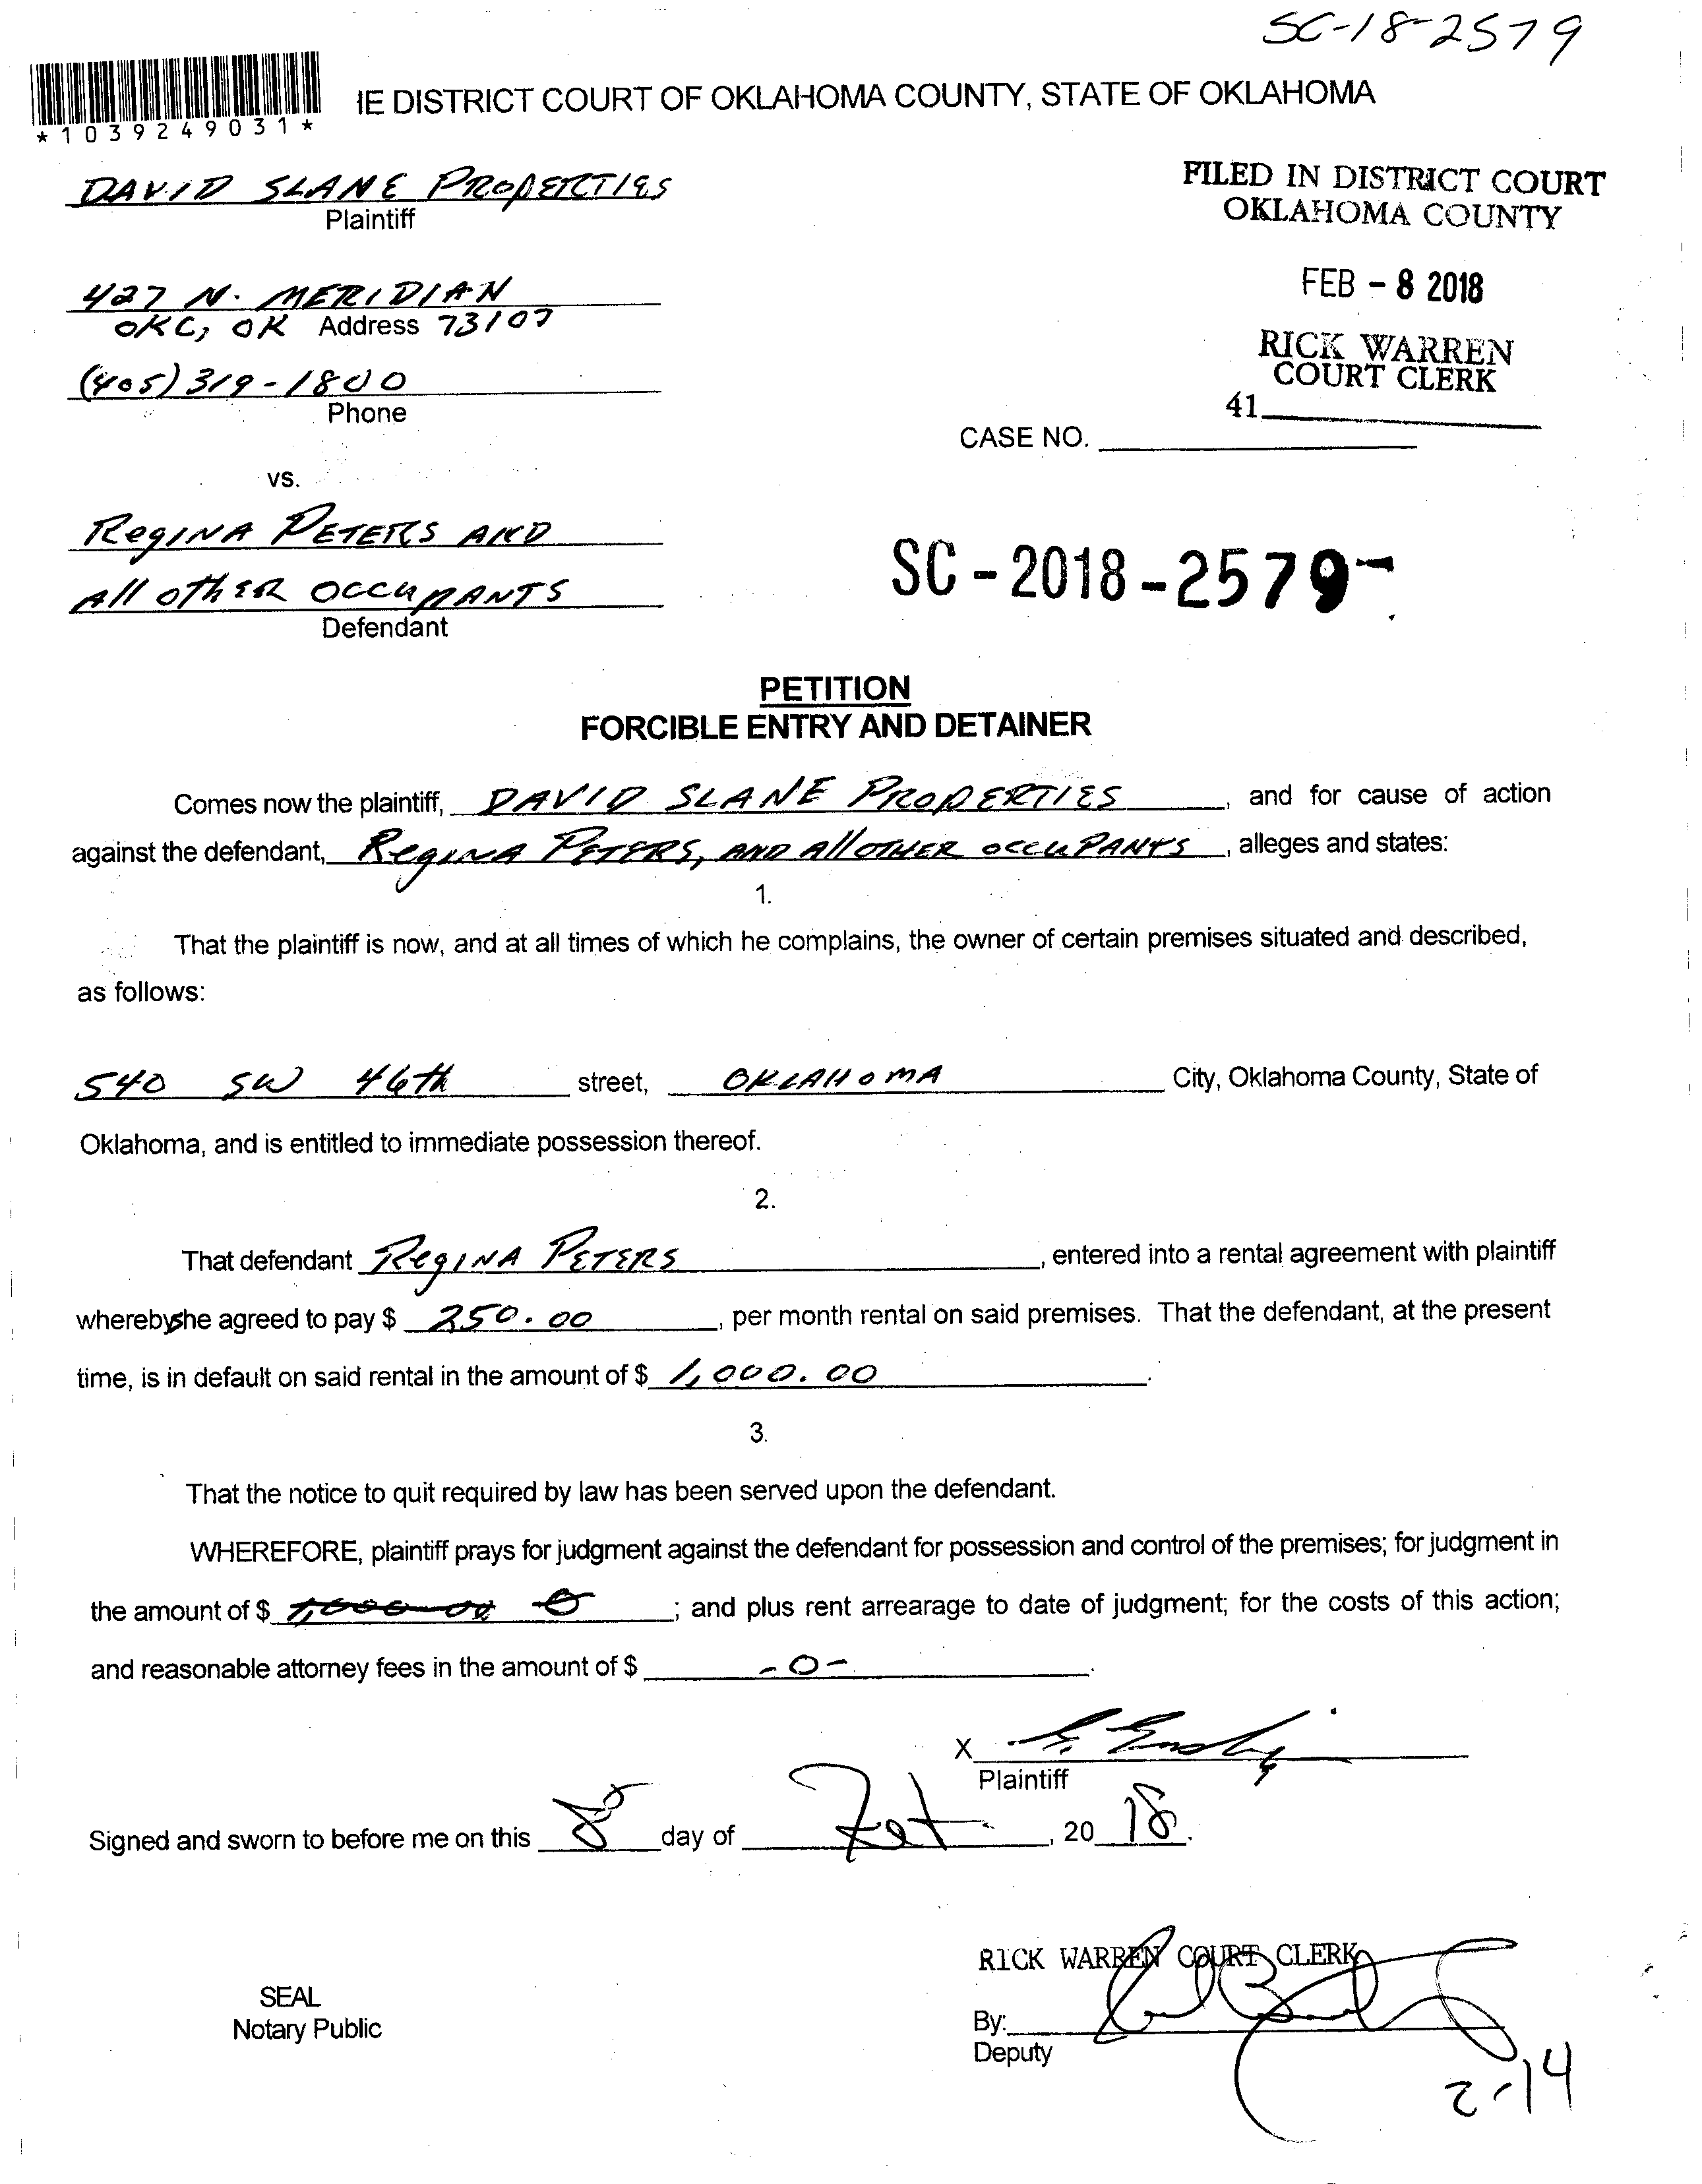 SC-18-2579
*1039249031*
IE DISTRICT COURT OF OKLAHOMA COUNTY, STATE OF OKLAHOMA
DAVID SLANE PROPERTIES
Plaintiff
FILED IN DISTRICT COURT
OKLAHOMA COUNTY
427 N. MERIDIAN
OKC, OK Address 73107
FEB - 8 2018
(405) 319-1800
Phone
RICK WARREN
COURT CLERK
41
CASE NO.
vs.
REGINA PETERS AND
All OTHER OCCUPANTS
Defendant
SC-2018-2579-
PETITION
FORCIBLE ENTRY AND DETAINER
Comes now the plaintiff, DAVID SLANE PROPERTIES, and for cause of action
against the defendant, REGINA PETERS, AND All OTHER OCCUPANTS, alleges and states:
1.
That the plaintiff is now, and at all times of which he complains, the owner of certain premises situated and described,
as follows:
540 SW 46th street, OKLAHOMA City, Oklahoma County, State of
Oklahoma, and is entitled to immediate possession thereof.
2.
That defendant REGINA PETERS, entered into a rental agreement with plaintiff
whereby she agreed to pay $ 250.00, per month rental on said premises. That the defendant, at the present
time, is in default on said rental in the amount of $ 1,000.00.
3.
That the notice to quit required by law has been served upon the defendant.
WHEREFORE, plaintiff prays for judgment against the defendant for possession and control of the premises; for judgment in
the amount of $ 1,000.00 0; and plus rent arrearage to date of judgment; for the costs of this action;
and reasonable attorney fees in the amount of $ -0-.
X
Plaintiff
Signed and sworn to before me on this 8 day of Feb, 20 18.
RICK WARREN COURT CLERK
SEAL
Notary Public
By:
Deputy
2-14